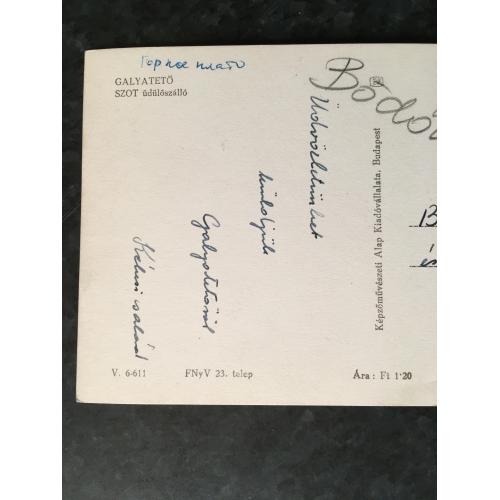 Горное плато
GALYATETŐ
SZOT üdülőszálló
Üdvözletünket
küldjük
Galyatetőről.
család
Képzőművészeti Alap Kiadóvállalata, Budapest
Bodó
B
és
V. 6-611
FNyV 23. telep
Ára: Ft 1·20